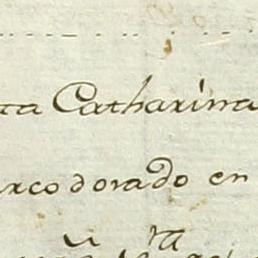 ta Catharina
rco dorado en